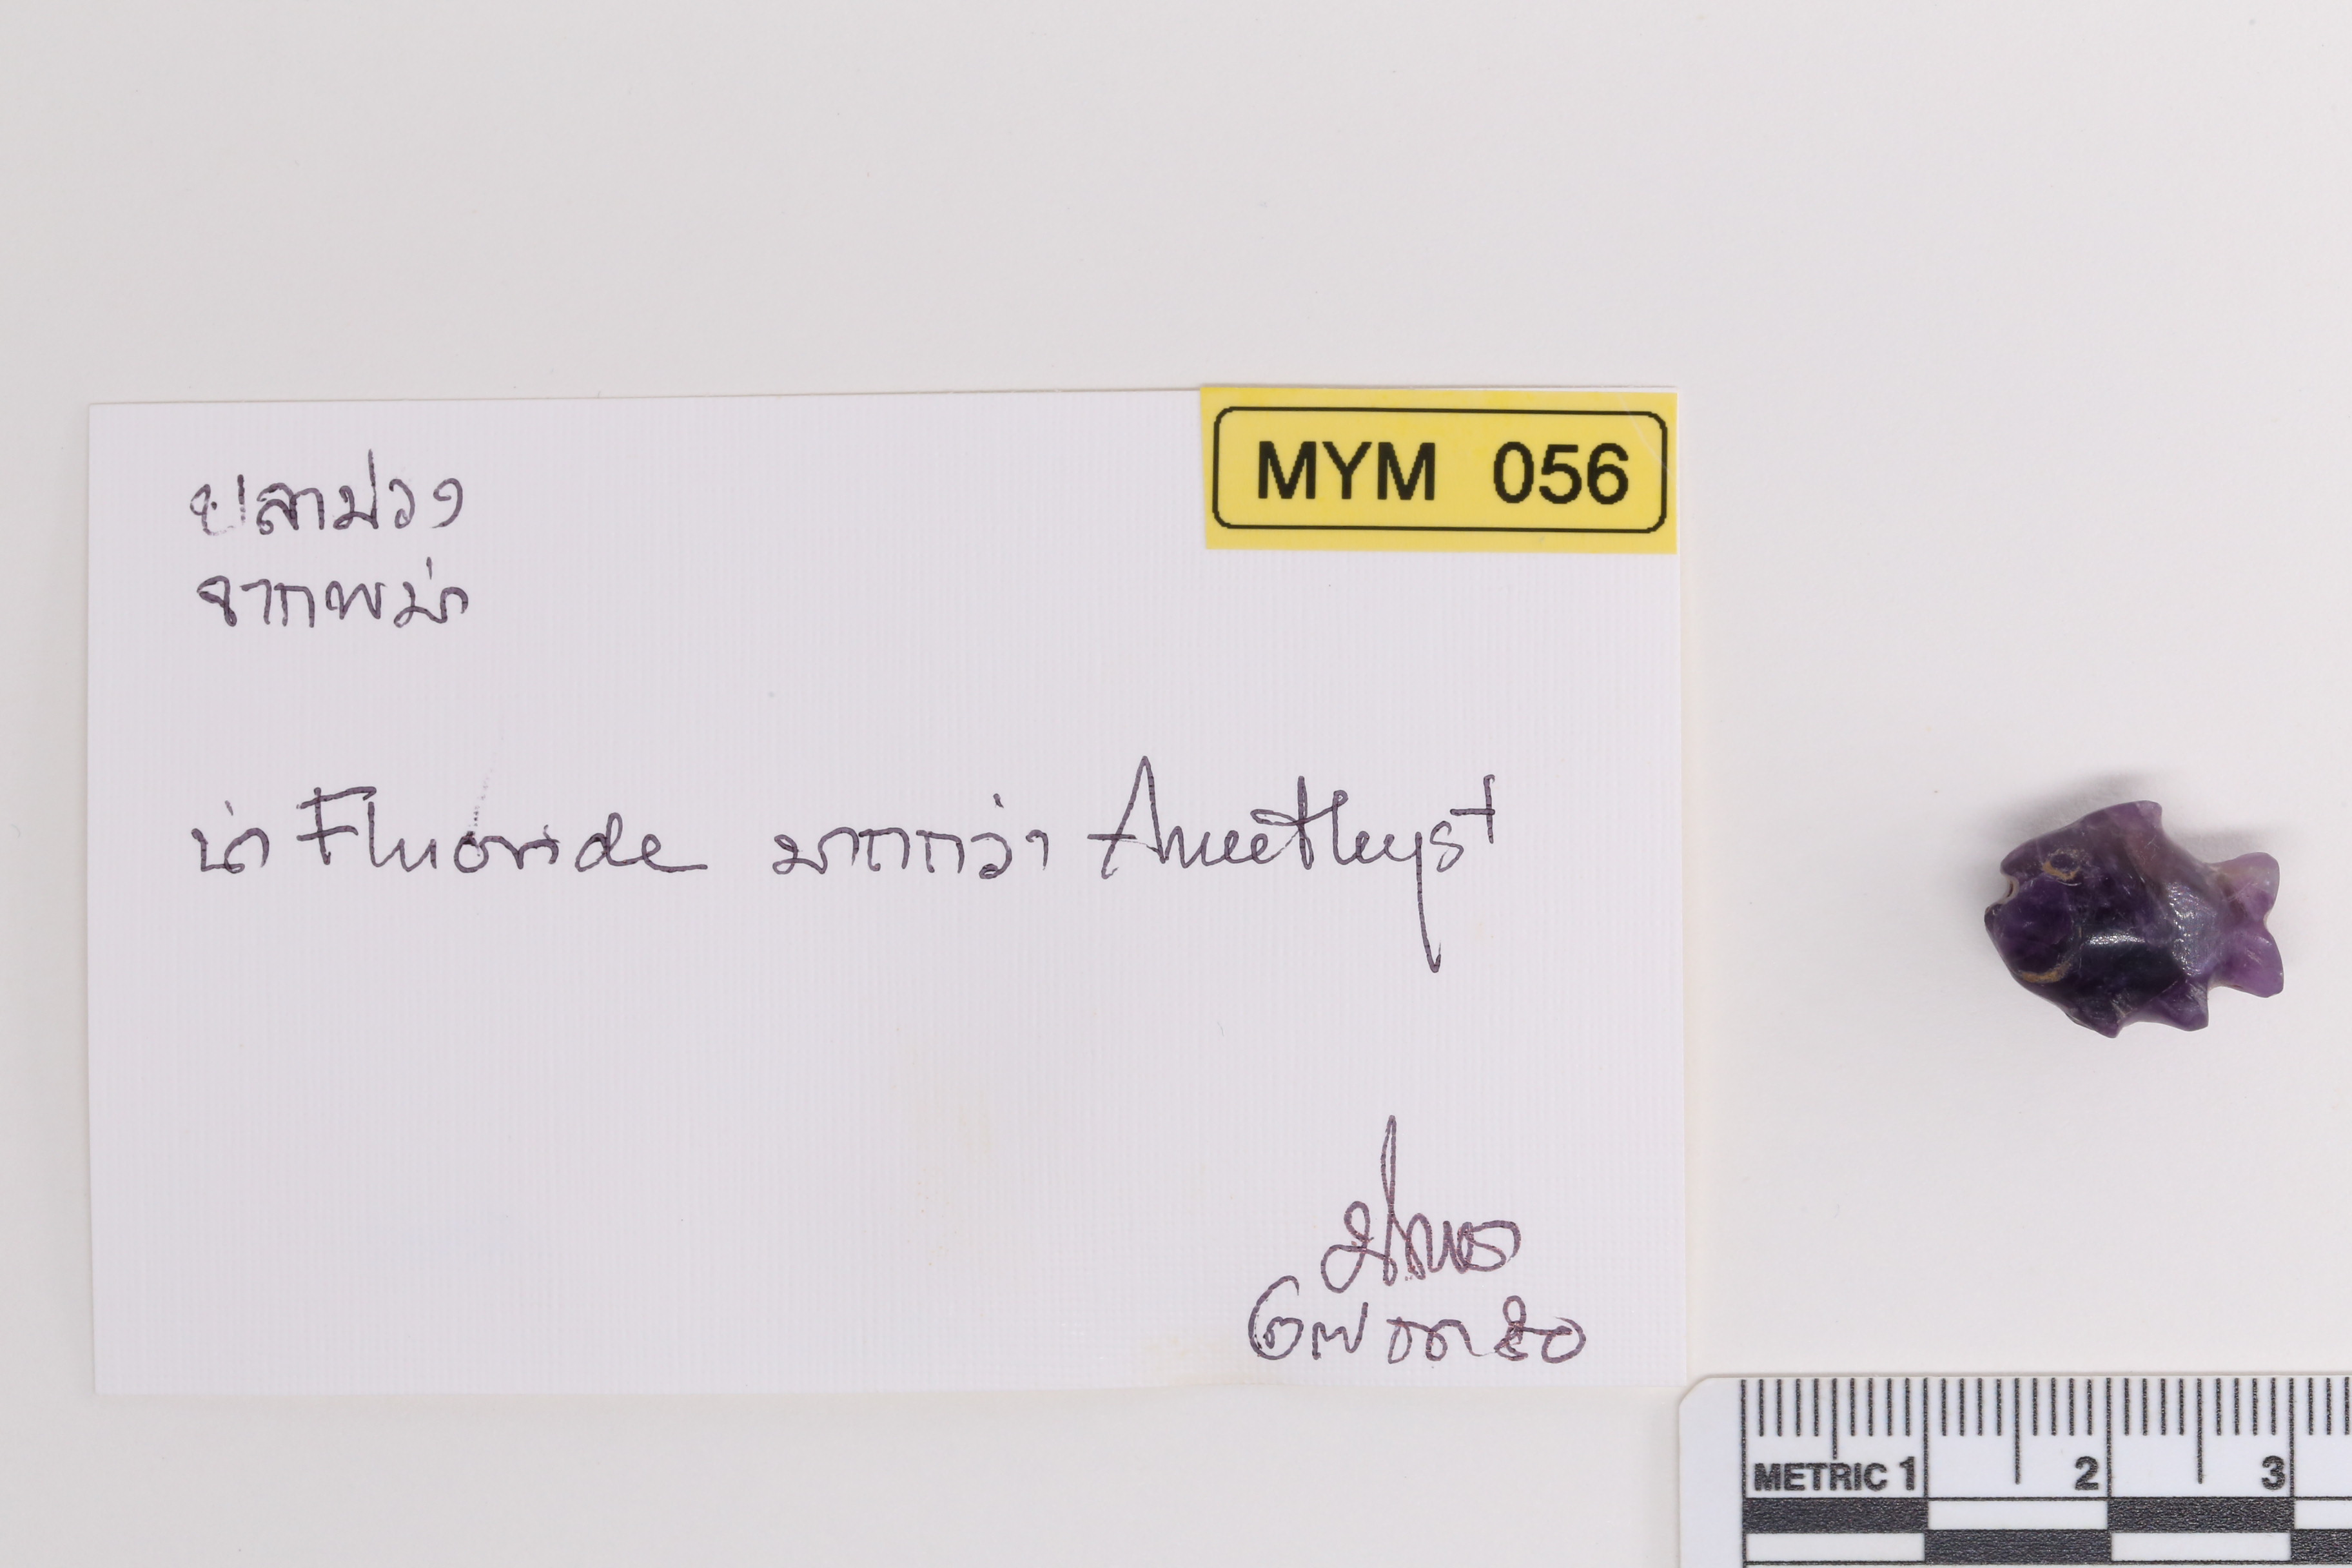 MYM 056
ปลาม่วง
จากพม่า
น่า Fluoride มากกว่า Amethyst
๒๗ ตค ๕๐
METRIC 1 2 3